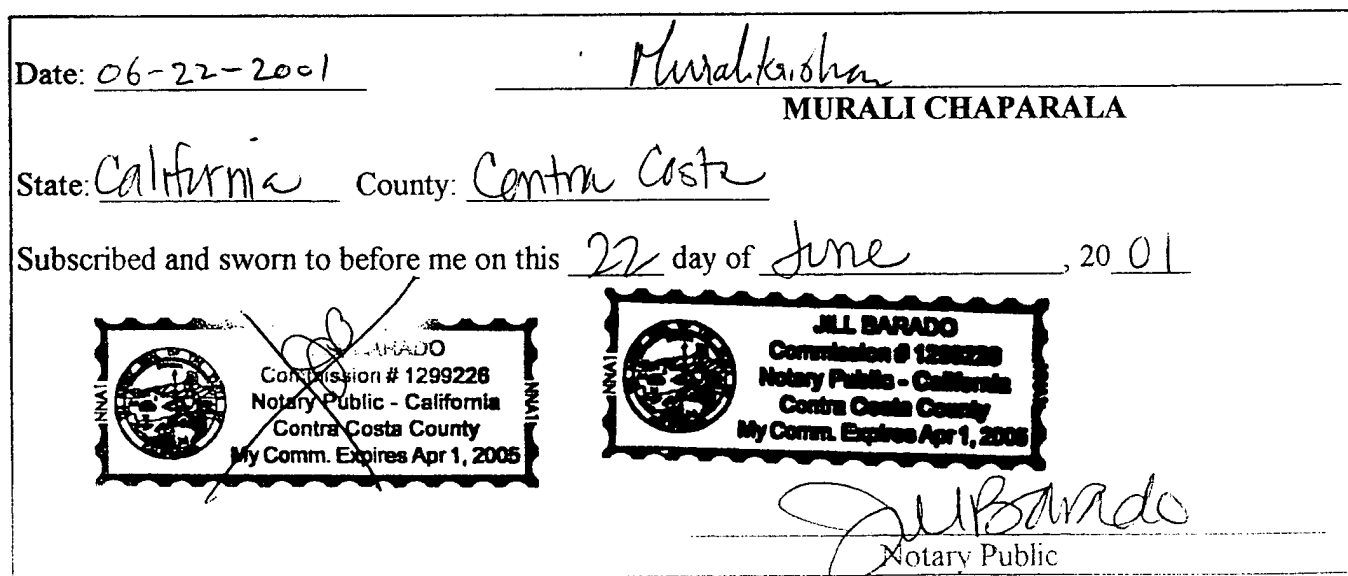 Date: 06-22-2001 Muralikrishna
MURALI CHAPARALA
State: California County: Contra Costa
Subscribed and sworn to before me on this 22 day of June, 20 01
ARADO
Commission # 1299226
Notary Public - California
Contra Costa County
My Comm. Expires Apr 1, 2005
NNA1
JILL BARADO
Commission # 1299226
Notary Public - California
Contra Costa County
My Comm. Expires Apr 1, 2005
NNA1
Jill Barado
Notary Public